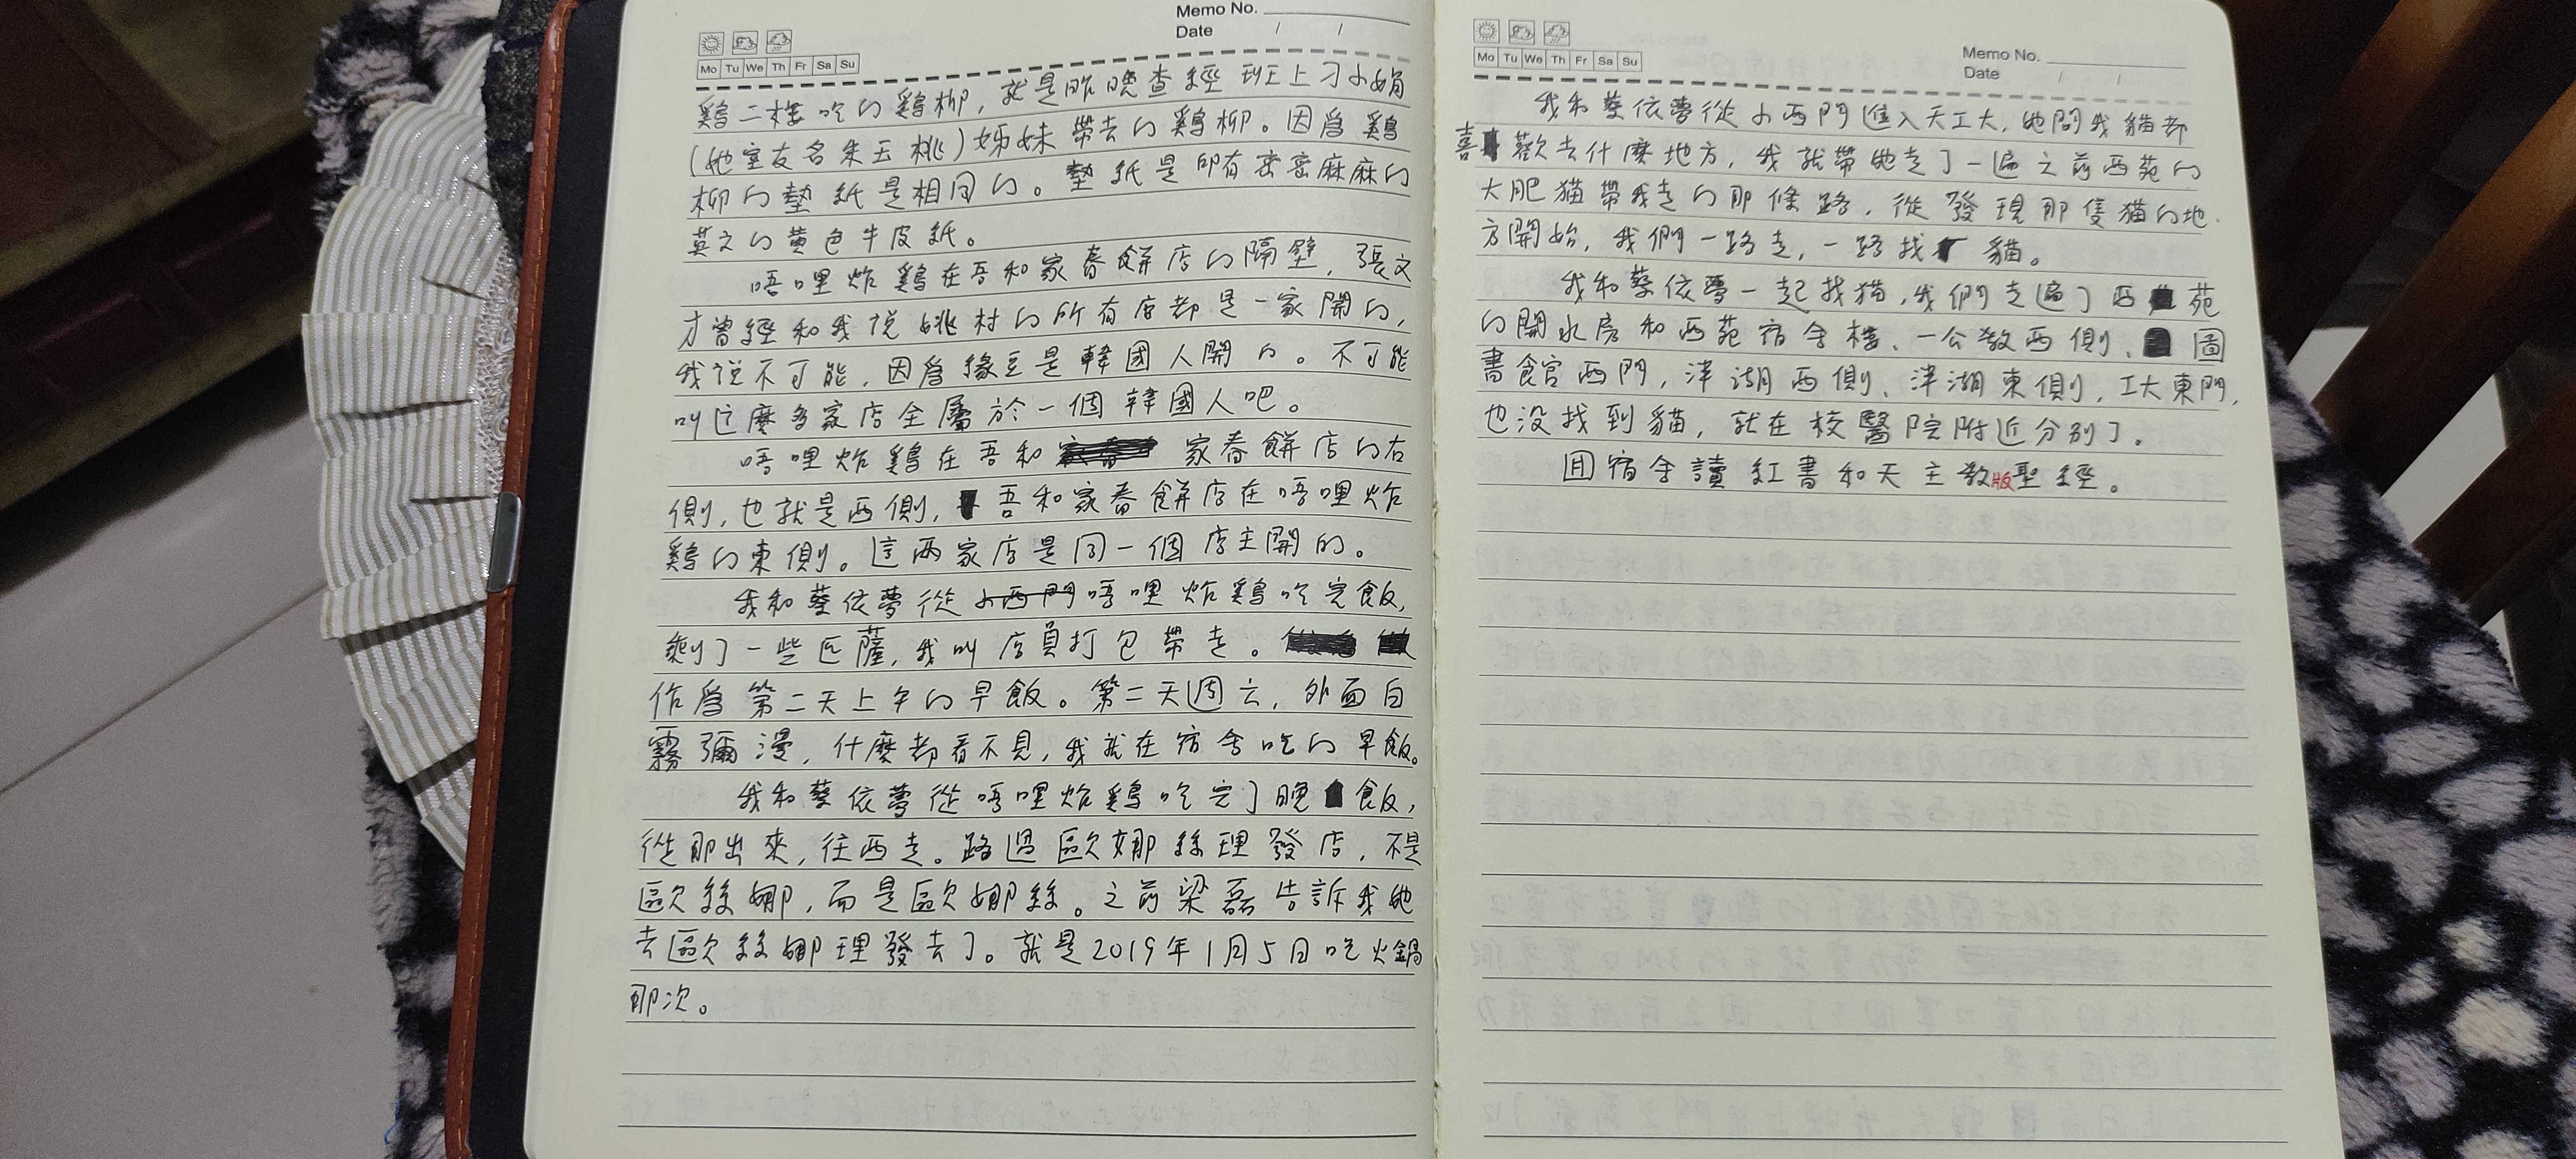 Memo No.
Date / /
Mo Tu We Th Fr Sa Su
鷄二樓吃的鷄柳，就是昨晚查經班上刁小娟
(她室友名朱玉桃)姊妹帶去的鷄柳。因爲鷄
柳的墊紙是相同的。墊紙是印有密密麻麻的
英文的黄色牛皮紙。
唔哩炸鷄在吾和家春餅店的隔壁，張文
才曾經和我説姚村的所有店都是一家開的，
我説不可能，因爲緣豆是韓國人開的。不可能
叫這麽多家店全屬於一個韓國人吧。
唔哩炸鷄在吾和家春餅店的右
側，也就是西側，吾和家春餅店在唔哩炸
鷄的東側。這兩家店是同一個店主開的。
我和蔡依夢從小西門唔哩炸鷄吃完飯，
剩了一些匹薩，我叫店員打包帶走。
作爲第二天上午的早飯。第二天週六，外面白
霧彌漫，什麽都看不見，我就在宿舍吃的早飯。
我和蔡依夢從唔哩炸鷄吃完了晚飯，
從那出來，往西走。路過歐娜絲理發店，不是
歐絲娜，而是歐娜絲。之前梁磊告訴我她
去歐絲娜理發去了。就是2019年1月5日吃火鍋
那次。
Memo No.
Date / /
Mo Tu We Th Fr Sa Su
我和蔡依夢從小西門進入天工大，她問我貓都
喜歡去什麽地方，我就帶她走了一遍之前西苑的
大肥貓帶我走的那條路，從發現那隻貓的地
方開始，我們一路走，一路找貓。
我和蔡依夢一起找猫，我們走遍了西苑
的開水房和西苑宿舍樓、一公教西側、圖
書館西門，泮湖西側、泮湖東側，工大東門，
也没找到貓，就在校醫院附近分别了。
囬宿舍讀紅書和天主教版聖經。